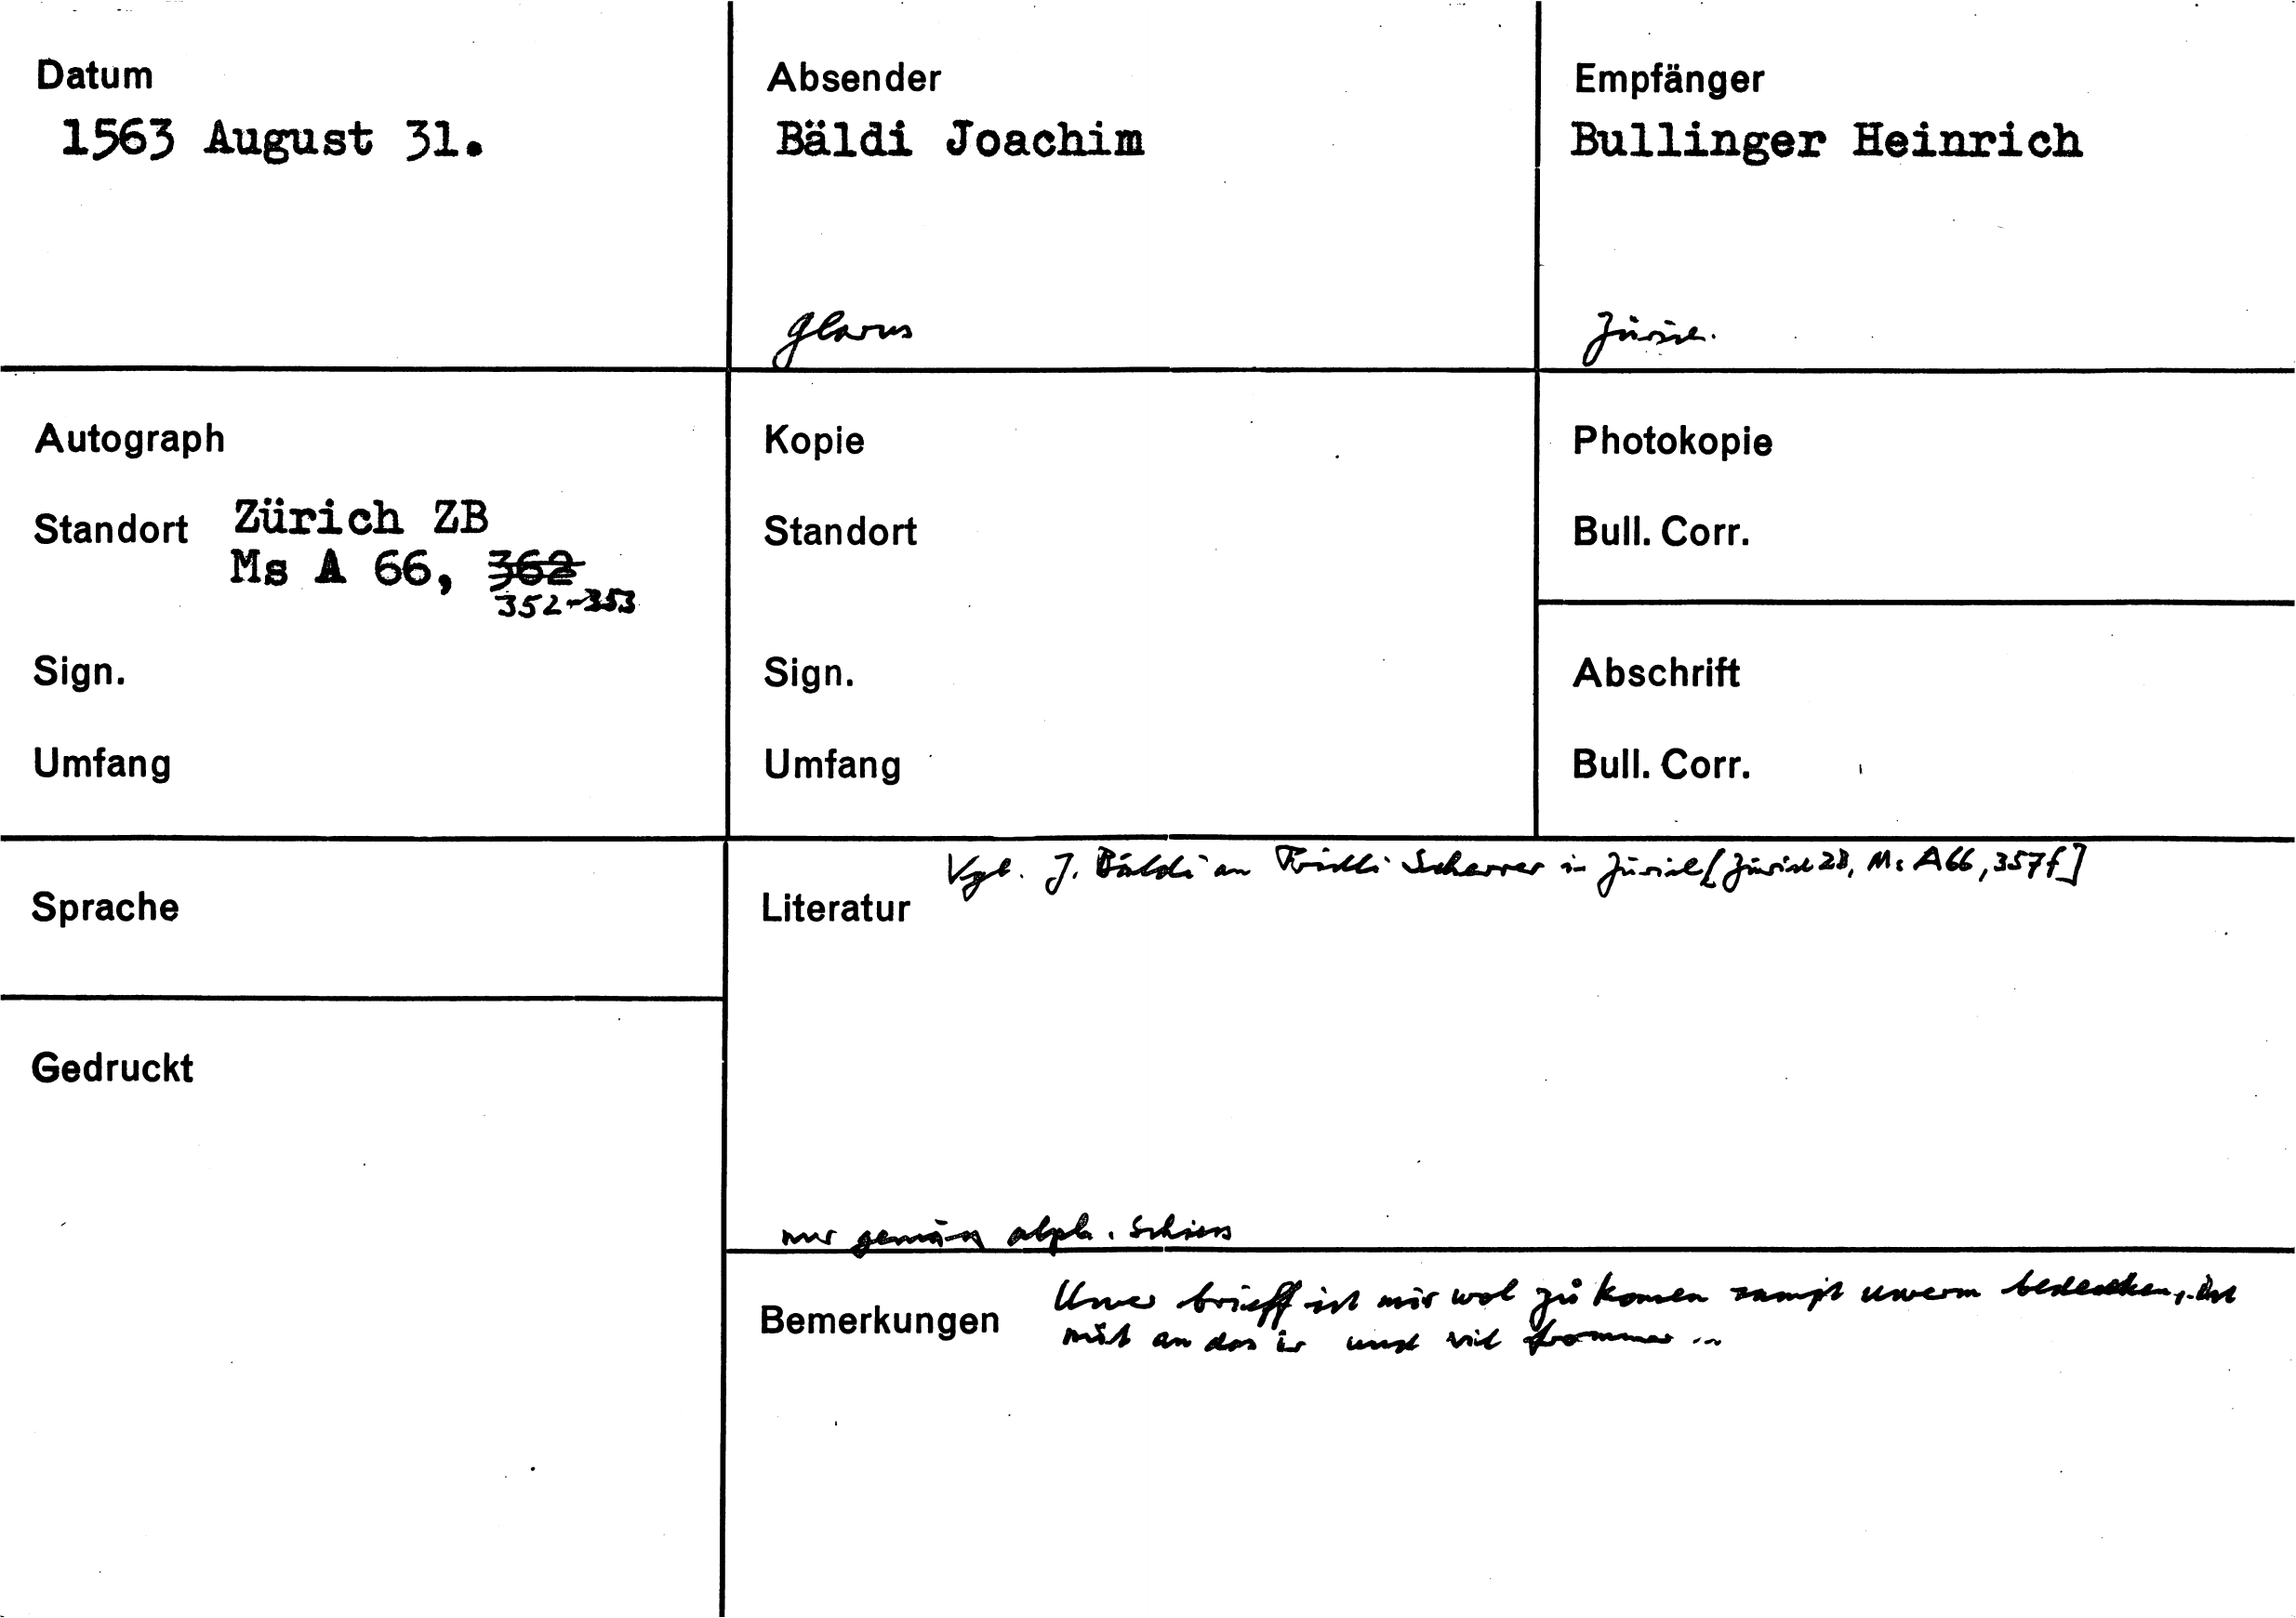 Datum
1563 August 31.
Absender
Bäldi Joachim
Glarus
Empfänger
Bullinger Heinrich
Zürich.
Autograph
Standort Zürich ZB
Ms A 66, 362
352-353
Sign.
Umfang
Kopie
Standort
Sign.
Umfang
Photokopie
Bull. Corr.
Abschrift
Bull. Corr.
Sprache
Gedruckt
Vgl. J. Bäldi an Fridli Scherrer in Zürich [Zürich ZB, Ms A66, 357f]
Literatur
nur gemäss alph. Schiess
Bemerkungen
Uwer brieff ist mir wol zů komen sampt uwerm bedencken, ist
nüt an das ir unst vil frommer ...